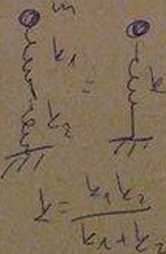 m
k₁
=
k
k₂
k = k₁k₂ / (k₁+k₂)